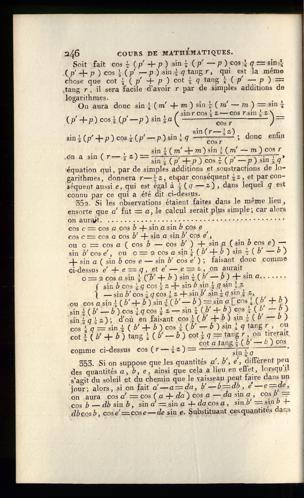 246 COURS DE MATHÉMATIQUES.
Soit fait cos ½ (p' + p) sin ½ (p' — p) cos ½ q = sin ½
(p' + p) cos ½ (p' — p) sin ½ q tang r, qui est la même
chose que cot ½ (p' + p) cot ½ q tang ½ (p' — p) =
tang r, il sera facile d'avoir r par de simples additions de
logarithmes.
On aura donc sin ½ (m' + m) sin ½ (m' — m) = sin ½
(p' + p) cos ½ (p' — p) sin ½ q (sin r cos ½ z — cos r sin ½ z) / cos r =
sin ½ (p' + p) cos ½ (p' — p) sin ½ q sin (r — ½ z) / cos r ; donc enfin
on a sin (r — ½ z) = sin ½ (m' + m) sin ½ (m' — m) cos r / sin ½ (p' + p) cos ½ (p' — p) sin ½ q ,
équation qui, par de simples additions et soustractions de lo-
garithmes, donnera r — ½ z, et par conséquent ½ z, et par con-
séquent aussi e, qui est égal à ½ (q — z), dans lequel q est
connu par ce qui a été dit ci-dessus.
352. Si les observations étaient faites dans le même lieu,
ensorte que a' fut = a, le calcul serait plus simple; car alors
on aurait
cos c = cos a cos b + sin a sin b cos e
cos c = cos a cos b' + sin a sin b' cos e',
ou 0 = cos a (cos b — cos b') + sin a (sin b cos e) —
sin b' cos e', ou 0 = 2 cos a sin ½ (b' + b) sin ½ (b' — b)
+ sin a (sin b cos e — sin b' cos e') ; faisant donc comme
ci-dessus e' + e = q, et e' — e = z, on aurait
0 = 2 cos a sin ½ (b' + b) sin ½ (b' — b) + sin a
{ sin b cos ½ q cos ½ z + sin b sin ½ q sin ½ z
{ — sin b' cos ½ q cos ½ z + sin b' sin ½ q sin ½ z,
ou cos a sin ½ (b' + b) sin ½ (b' — b) = sin a [cos ½ (b' + b)
sin ½ (b' — b) cos ½ q cos ½ z — sin ½ (b' + b) cos ½ (b' — b)
sin ½ q ½ z) ; d'où en faisant cos ½ (b' + b) sin ½ (b' — b)
cos ½ q = sin ½ (b' + b) cos ½ (b' — b) sin ½ q tang r, ou
cot ½ (b' + b) tang ½ (b' — b) cot ½ q = tang r, on tirerait
comme ci-dessus cos (r — ½ z) = cot a tang ½ (b' — b) cos / sin ½ q
353. Si on suppose que les quantités a', b', e', diffèrent peu
des quantités a, b, e, ainsi que cela a lieu en effet, lorsqu'il
s'agit du soleil et du chemin que le vaisseau peut faire dans un
jour; alors, si on fait a' — a = da, b' — b = db, e' — e = de,
on aura cos a' = cos (a + da) cos a — da sin a, cos b' =
cos b — db sin b, sin a' = sin a + da cos a, sin b' = sin b +
db cos b, cos e' = cos e — de sin e. Substituant ces quantités dans